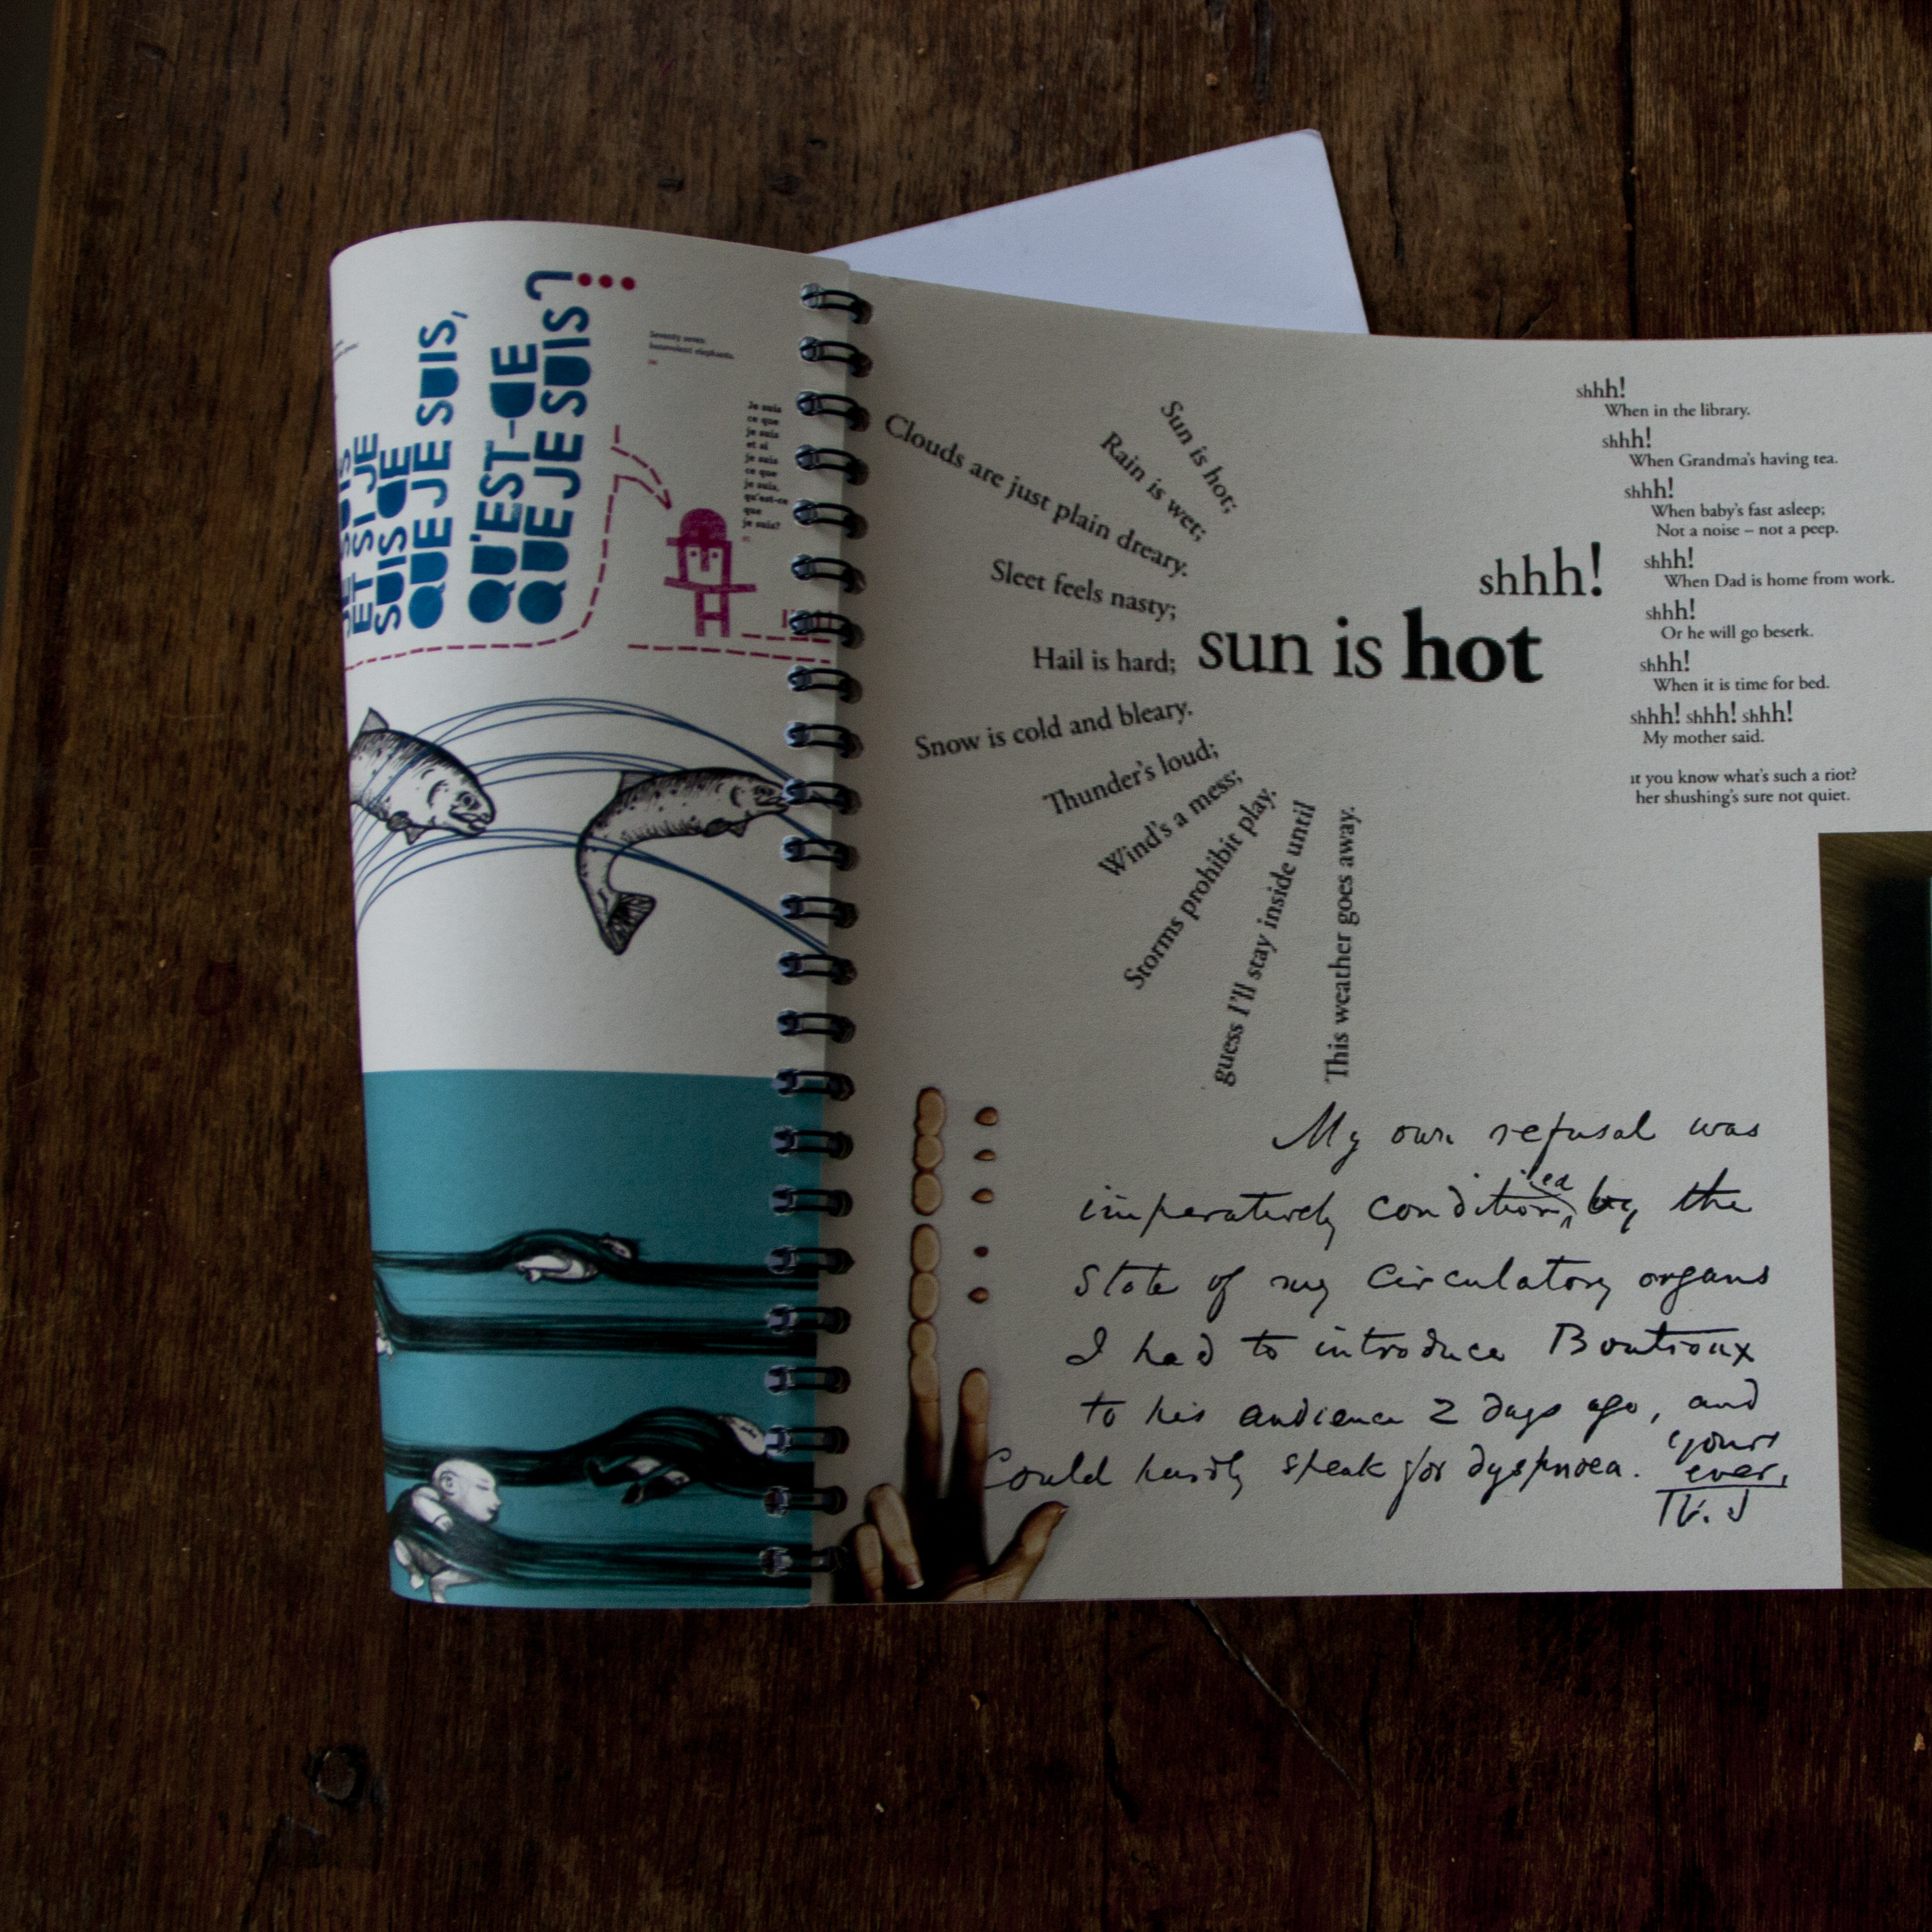 SUIS DE
QUE JE SUIS,
QU'EST-CE
QUE JE SUIS?
Seventy seven
benevolent elephants.
Je suis
ce que
je suis
et si
je suis
ce que
je suis,
qu'est-ce
que
je suis?
Sun is hot;
Rain is wet;
Clouds are just plain dreary.
Sleet feels nasty;
Hail is hard;
Snow is cold and bleary.
Thunder's loud;
Wind's a mess;
Storms prohibit play.
guess I'll stay inside until
This weather goes away.
sun is hot
shhh!
shhh!
When in the library.
shhh!
When Grandma's having tea.
shhh!
When baby's fast asleep;
Not a noise – not a peep.
shhh!
When Dad is home from work.
shhh!
Or he will go beserk.
shhh!
When it is time for bed.
shhh! shhh! shhh!
My mother said.
ut you know what's such a riot?
her shushing's sure not quiet.
My own refusal was
imperatively conditioned by the
state of my circulatory organs
I had to introduce Boutroux
to his audience 2 days ago, and
Could hardly speak for dyspnoea. Yours
ever,
W. J